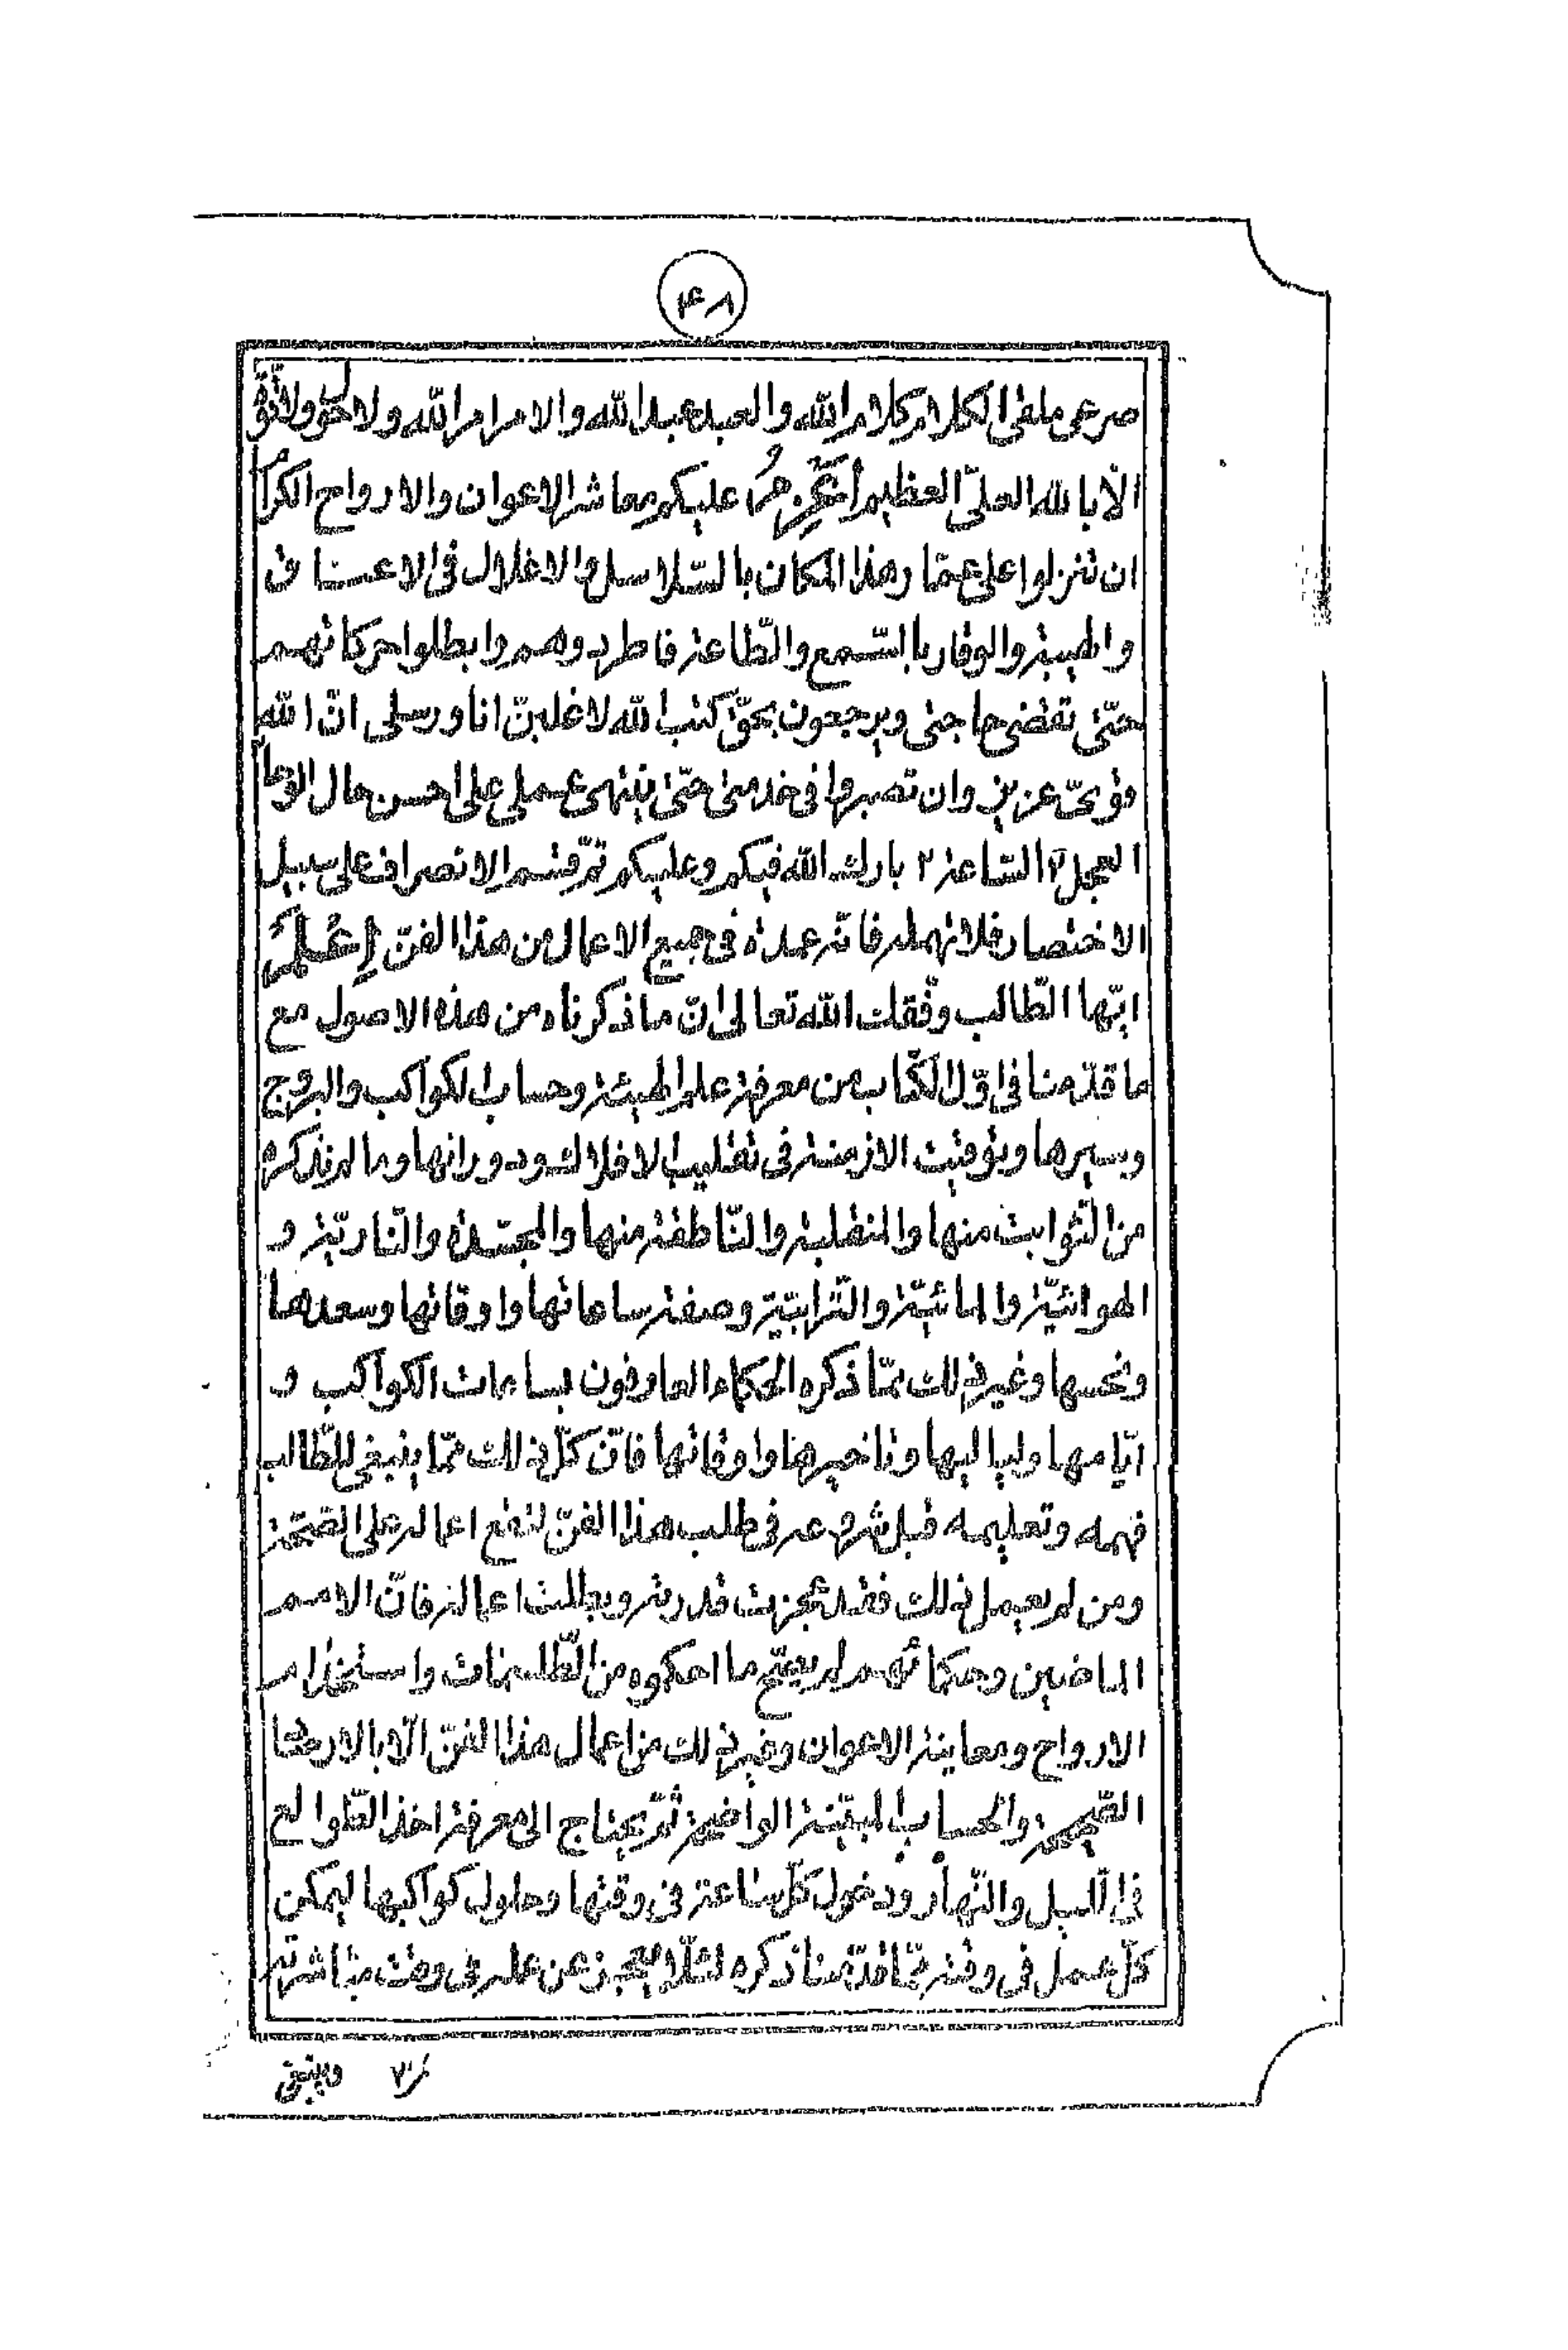 ۴۸
صرعى ملقى الكلام كلام الله والعبد عبد الله والامر امر الله ولا حول ولا قوة
الا بالله العلىّ العظيم عليكم معاشر الاعوان والارواح الكرام
ان تنزلوا على عمّار هذا المكان بالسّلاسل والاغلال فى الاعناق
والهيبة والوقار بالسّمع والطّاعة فاطردوهم وابطلوا حركاتهم
حتّى تقضى حاجتى ويرجعون بحقّ كتب الله لاغلبنّ انا ورسلى انّ الله
قوىّ عزيز وان تصيروا فى خدمتى حتّى ينتهى عملى على احسن حال الوحا
العجل ۲ الساعة ۲ بارك الله فيكم وعليكم ثمّ قسم الانصراف على سبيل
الاختصار فلا تهمله فانّه عمدة فى جميع الاعمال من هذا الفنّ اِعْلَمْ
ايّها الطّالب وفّقك الله تعالى انّ ما ذكرناه من هذه الاصول مع
ما قدّمنا فى اوّل الكتاب من معرفة علم الهيئة وحساب الكواكب والبروج
وسيرها وتوقيت الازمنة فى تقليب الافلاك ودورانها وما لم نذكره
من الثّوابت منها والمنقلبة والنّاطقة منها والمجسّدة والنّاريّة و
الهوائيّة والمائيّة والتّرابيّة وصفة ساعاتها واوقاتها وسعدها
ونحسها وغير ذلك ممّا ذكره الحكماء العارفون بساعات الكواكب و
ايّامها ولياليها وتاخيرها واوقاتها فانّ كلّ ذلك ممّا ينبغى للطّالب
فهمه وتعليمه قبل شروعه فى طلب هذا الفنّ لتقع اعماله على الصّحّة
ومن لم يعمل ذلك فقد عجزت قدرته وبطلت اعماله فانّ الامم
الماضين وحكمائهم لم يصحّ ما احكموه من الطّلسمات واستخدام
الارواح ومعاينة الاعوان وغير ذلك من اعمال هذا الفنّ الّا بالارصاد
الصّحيحة والحساب المبيّنة الواضحة ثمّ يحتاج الى معرفة اخذ الطّوالع
فى اللّيل والنّهار ودخول كلّ ساعة فى وقتها وحلول كواكبها ليمكن
كلّ عمل فى وقته ممّا قدّمنا ذكره لئلّا يعجز عن عمله فى وقت مباشرته
وينبغى